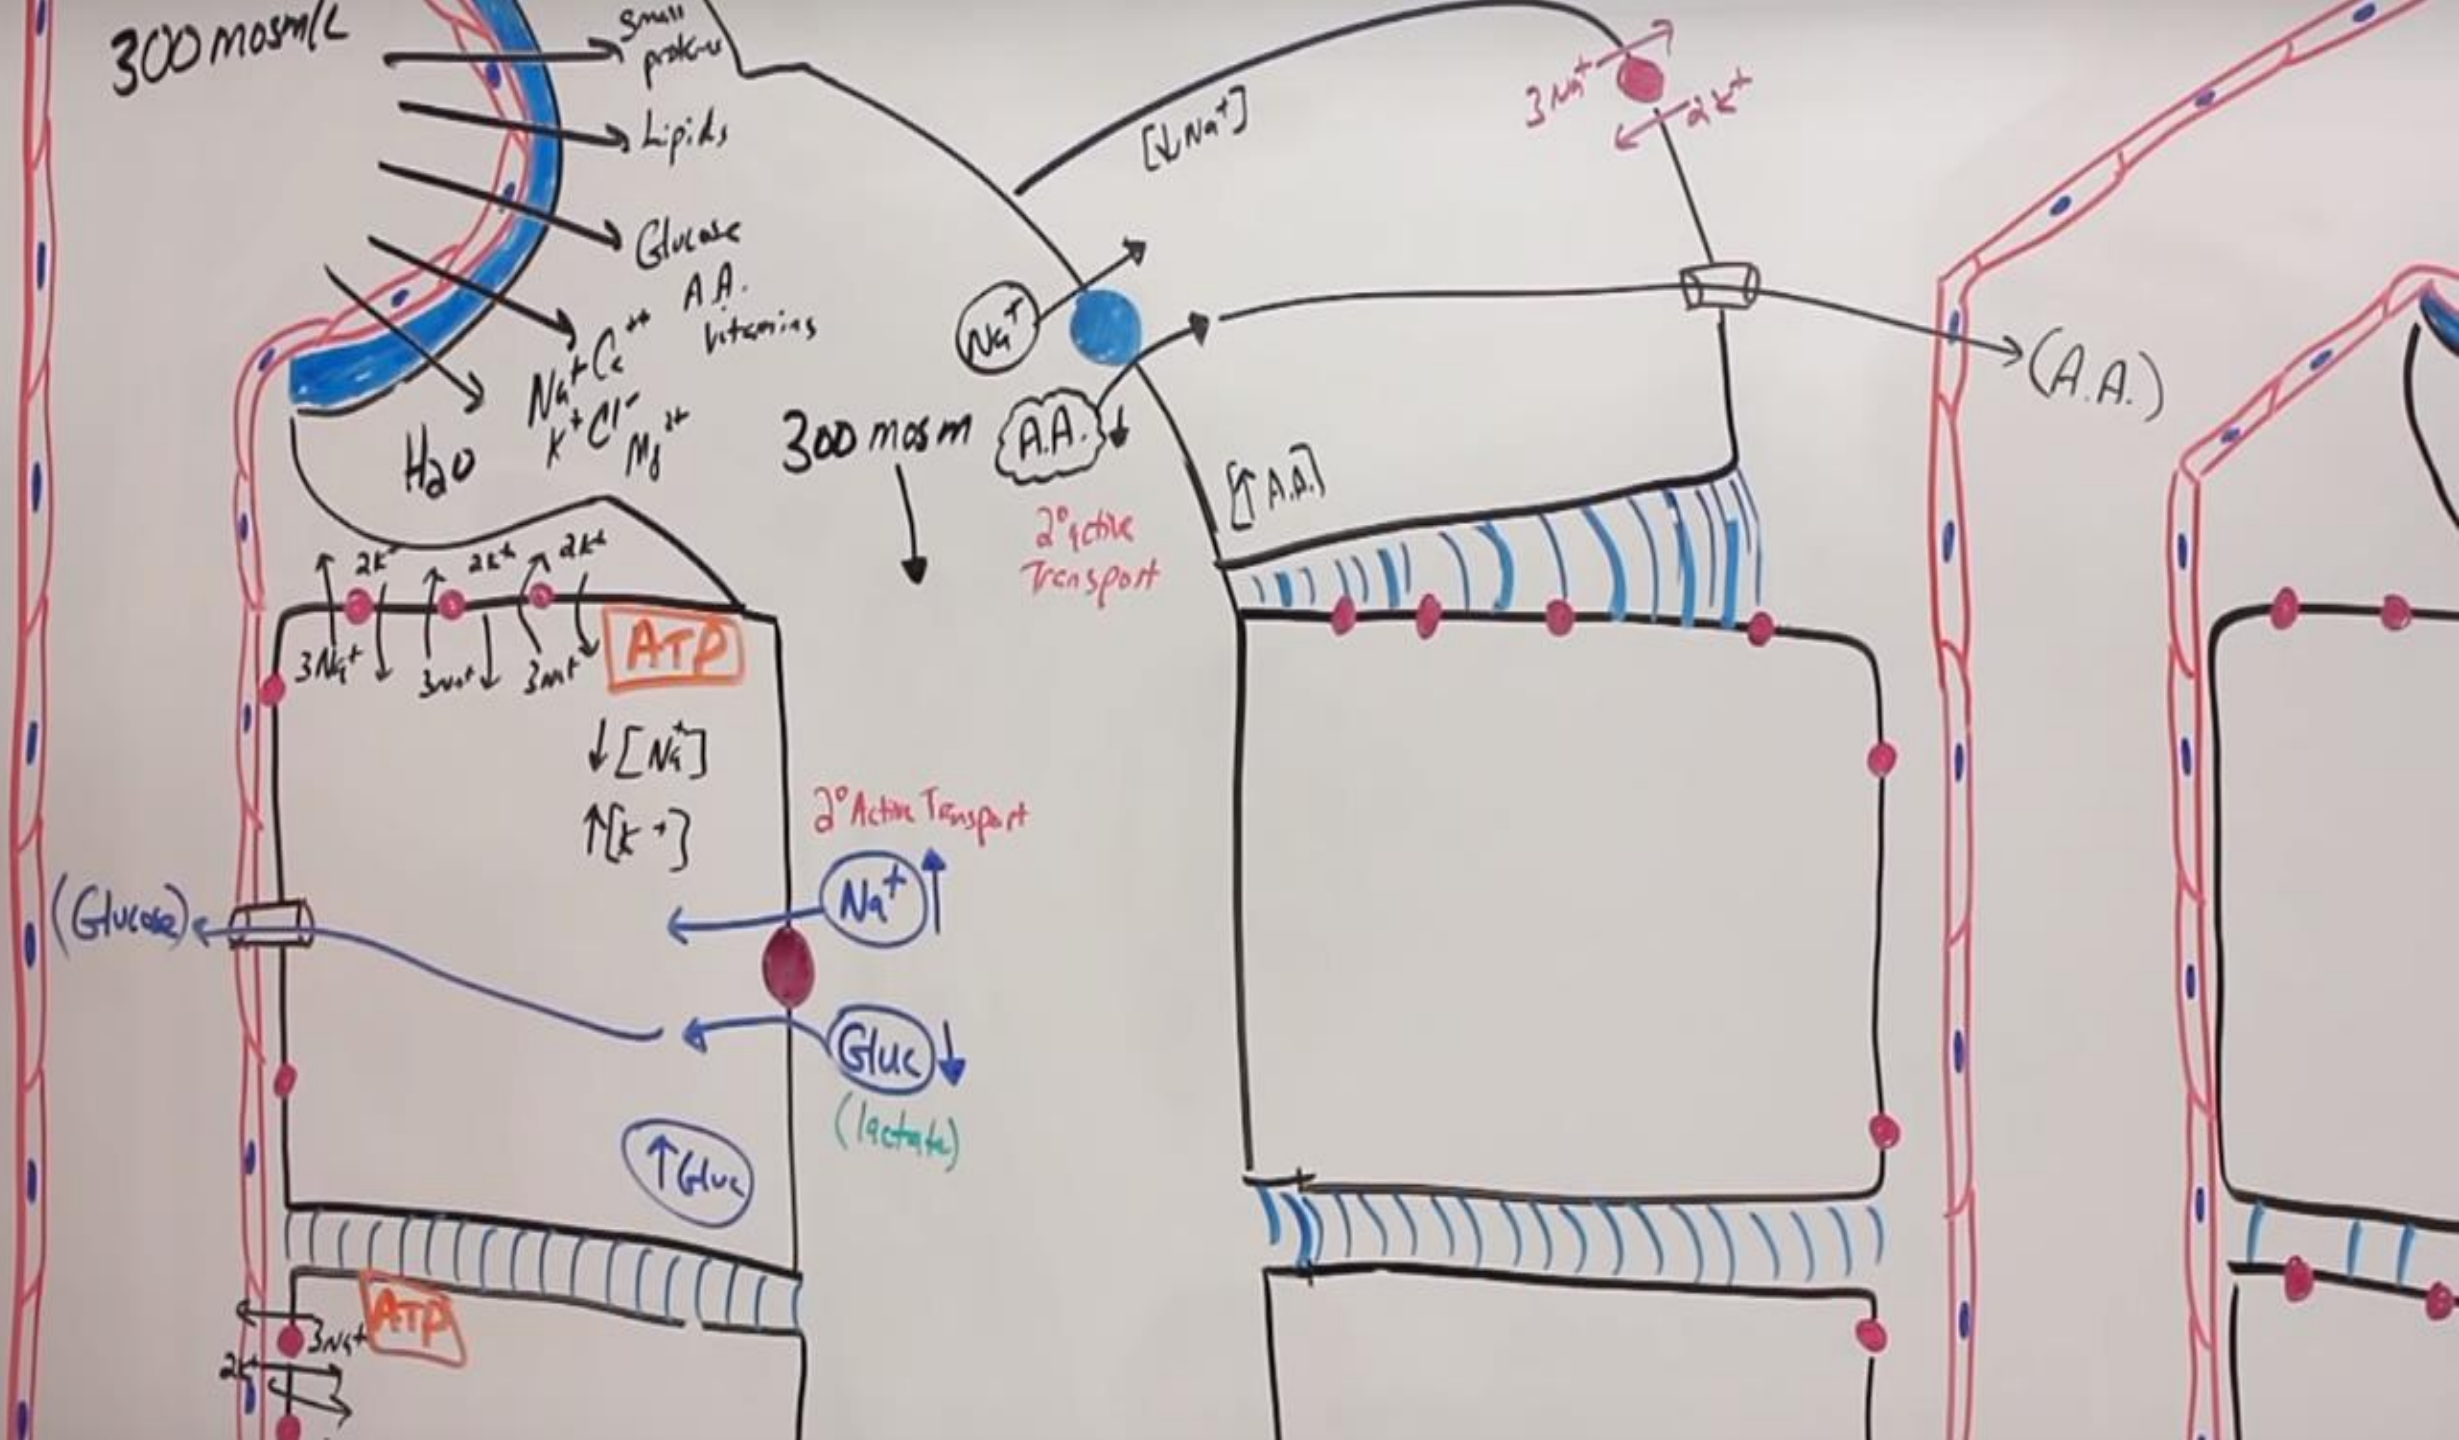 300 mosm/L
Small
proteins
Lipids
Glucose
A.A.
Vitamins
Na+ Ca++
K+ Cl-
Mg2+
H2O
300 mosm
[↓Na+]
3Na+
2K+
Na+
A.A. ↓
2° Active
Transport
[↑ A.A.]
(A.A.)
2K+
2K+
2K+
3Na+
3Na+
3Na+
ATP
↓ [Na+]
↑[K+]
2° Active Transport
Na+ ↑
(Glucose)
Gluc ↓
(lactate)
↑Gluc
ATP
3Na+
2K+